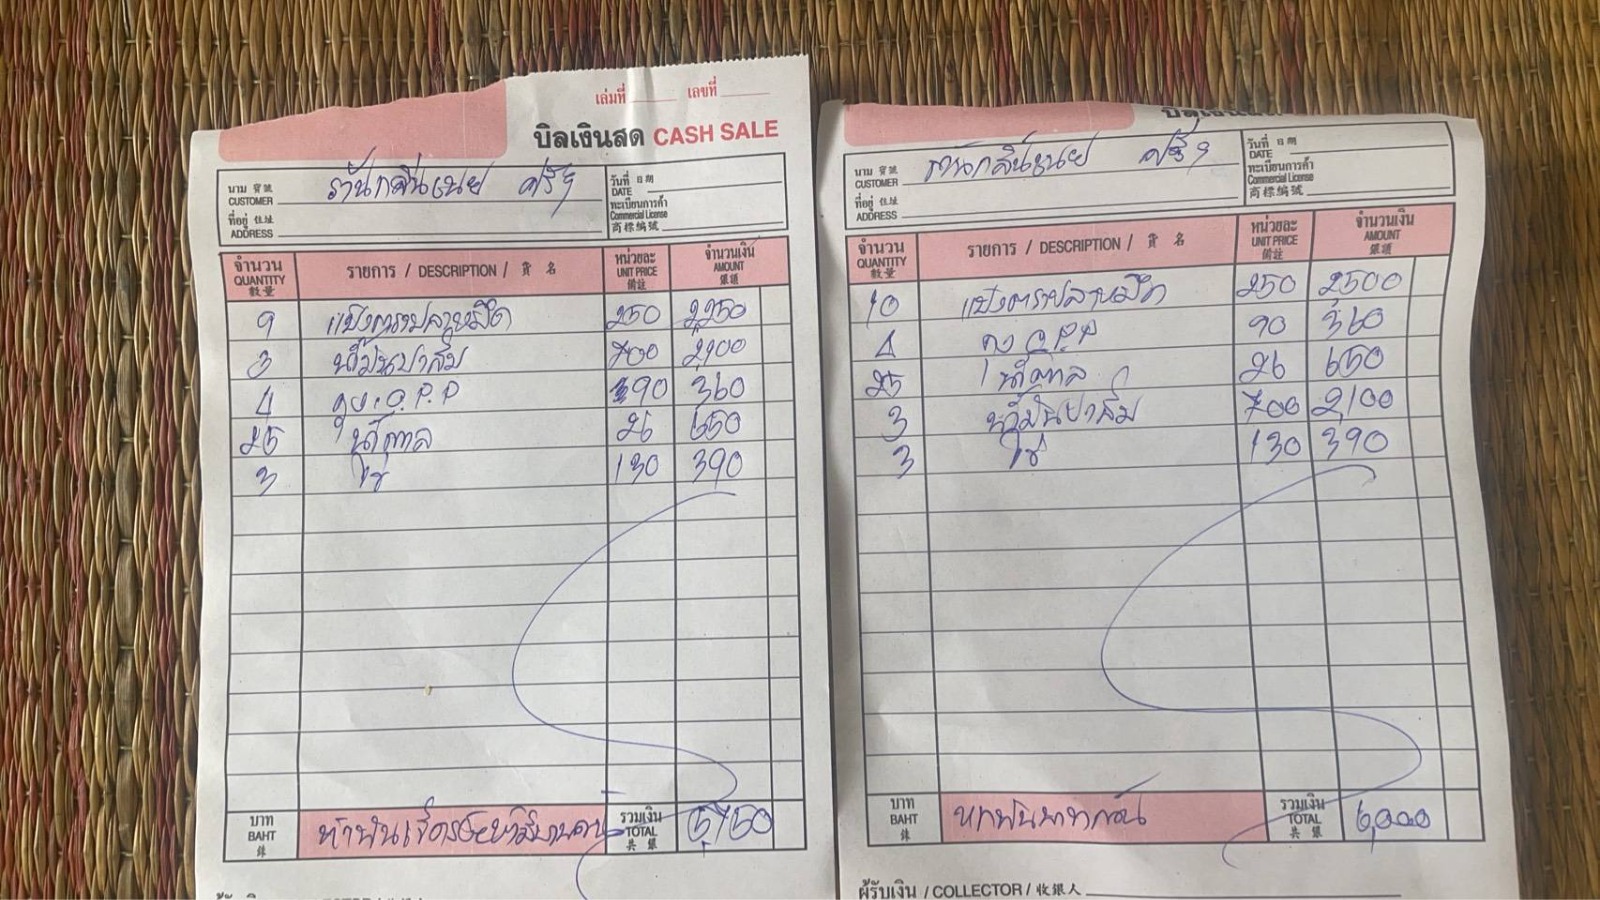 เล่มที่ เลขที่
บิลเงินสด CASH SALE
นาม 寶號
CUSTOMER
ร้านกลิ่นเนย ศรีๆ
วันที่ 日期
DATE
ทะเบียนการค้า
Commercial License
商標編號
ที่อยู่ 住址
ADDRESS
จำนวน รายการ / DESCRIPTION / 貨名 หน่วยละ จำนวนเงิน
QUANTITY UNIT PRICE AMOUNT
數量 備註 銀碼
9 แป้งตราปลาหมึก 250 2,250
3 น้ำมันปาล์ม 700 2,100
4 ถุง.O.P.P 90 360
25 น้ำตาล 26 650
3 ไข่ 130 390
บาท
BAHT
銖
ห้าพันเจ็ดร้อยห้าสิบบาทถ้วน
รวมเงิน
TOTAL
共銀
5,750
บิลเงินสด
นาม 寶號
CUSTOMER
ร้านกลิ่นเนย ศรีๆ
วันที่ 日期
DATE
ทะเบียนการค้า
Commercial License
商標編號
ที่อยู่ 住址
ADDRESS
จำนวน รายการ / DESCRIPTION / 貨名 หน่วยละ จำนวนเงิน
QUANTITY UNIT PRICE AMOUNT
數量 備註 銀碼
10 แป้งตราปลาหมึก 250 2500
4 ถุง O.P.P 90 360
25 น้ำตาล 26 650
3 น้ำมันปาล์ม 700 2,100
3 ไข่ 130 390
บาท
BAHT
銖
หกพันบาทถ้วน
รวมเงิน
TOTAL
共銀
6,000
ผู้รับเงิน / COLLECTOR / 收銀人